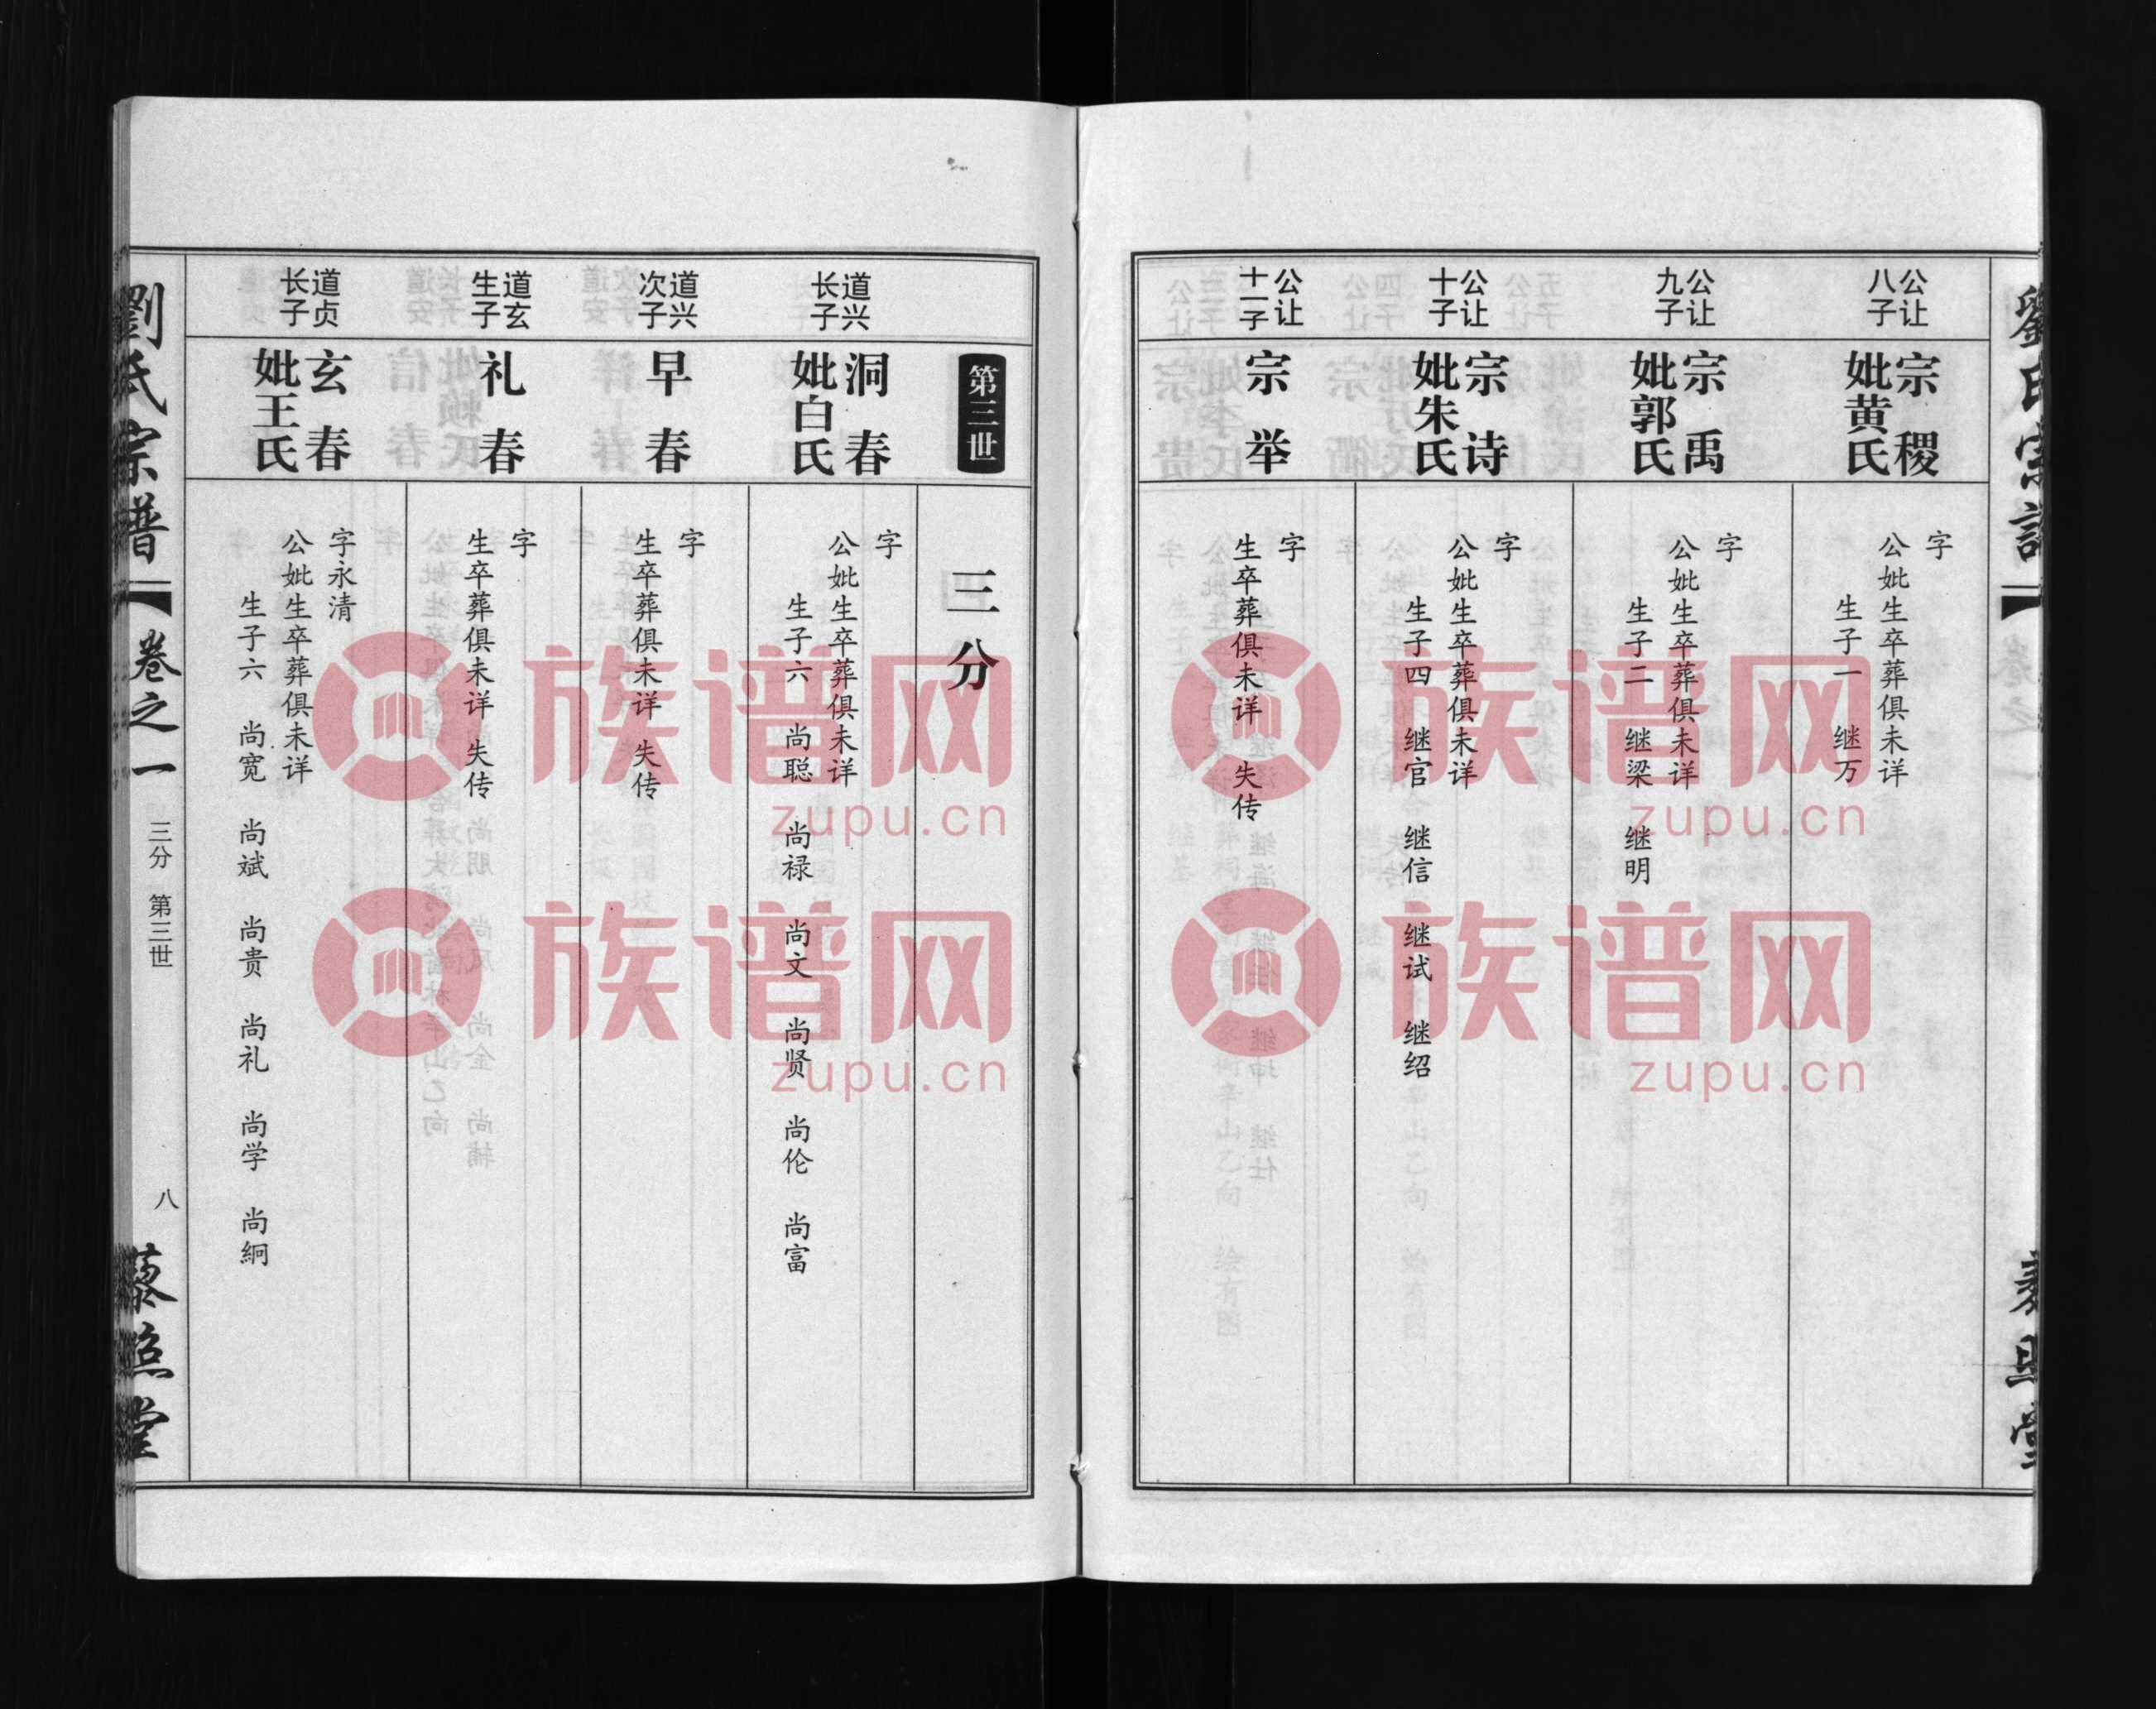 劉氏宗譜
公让
八子
宗稷
妣黄氏
字
公妣生卒葬俱未详
生子一 继万
公让
九子
宗禹
妣郭氏
字
公妣生卒葬俱未详
生子二 继梁 继明
公让
十子
宗诗
妣朱氏
字
公妣生卒葬俱未详
生子四 继官 继信 继试 继绍
公让
十一子
宗举
字
生卒葬俱未详 失传
第三世
三分
道兴
长子
洞春
妣白氏
字
公妣生卒葬俱未详
生子六 尚聪 尚禄 尚文 尚贤 尚伦 尚富
道兴
次子
早春
字
生卒葬俱未详 失传
道玄
生子
礼春
字
生卒葬俱未详 失传
道贞
长子
玄春
妣王氏
字永清
公妣生卒葬俱未详
生子六 尚宽 尚斌 尚贵 尚礼 尚学 尚絅
劉氏宗譜
卷之一
三分 第三世
八
藜照堂
族谱网
zupu.cn
族谱网
zupu.cn
族谱网
zupu.cn
族谱网
zupu.cn